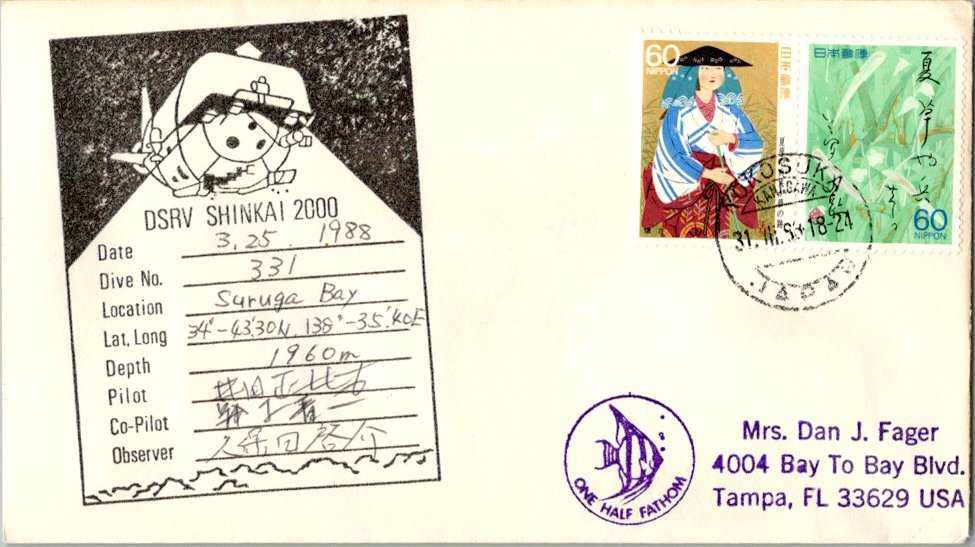 DSRV SHINKAI 2000
Date 3.25 1988
Dive No. 331
Location Suruga Bay
Lat, Long 34°-43'30N. 138°-35'.40E
Depth 1960m
Pilot
Co-Pilot
Observer 久保田
60
NIPPON
日本郵便
日本郵便
夏草や兵
60
NIPPON
YOKOSUKA
KANAGAWA
18-24
JAPAN
ONE HALF FATHOM
Mrs. Dan J. Fager
4004 Bay To Bay Blvd.
Tampa, FL 33629 USA